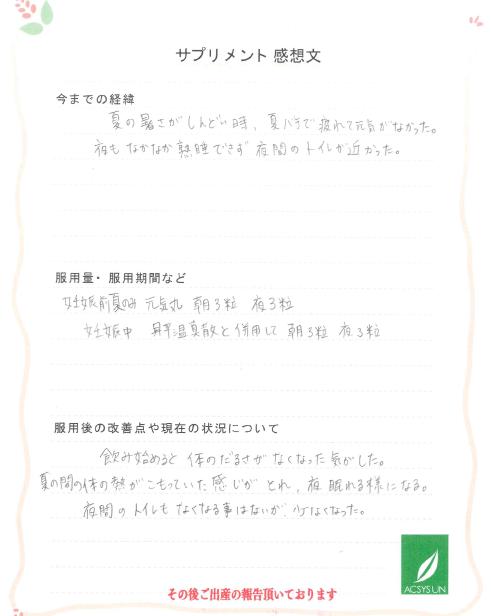 サプリメント 感想文
今までの経緯
夏の暑さがしんどい時、夏バテで疲れて元気がなかった。
夜もなかなか熟睡できず夜間のトイレが近かった。
服用量・服用期間など
妊娠前夏のみ 元気丸 朝3粒 夜3粒
妊娠中 昇温真散と併用して 朝3粒 夜3粒
服用後の改善点や現在の状況について
飲み始めると 体のだるさがなくなった気がした。
夏の間の体の熱がこもっていた感じがとれ、夜眠れる様になる。
夜間のトイレもなくなる事はないが、少なくなった。
ACSYSUN
その後ご出産の報告頂いております